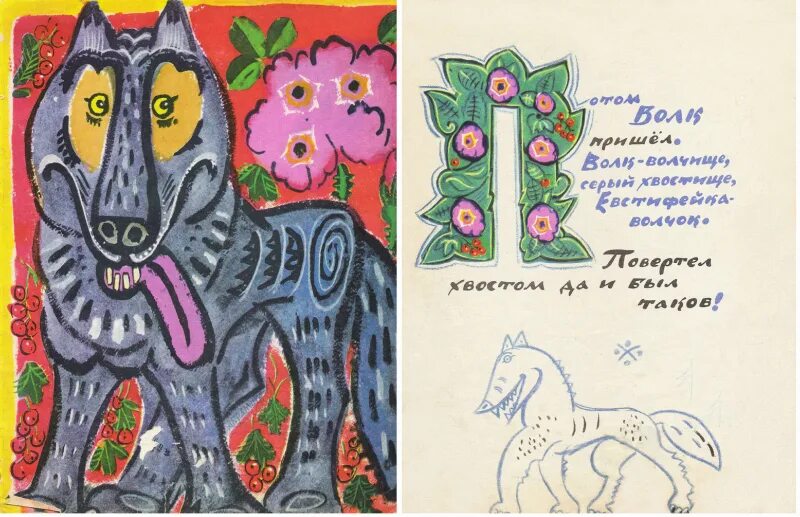 Потом Волк
пришёл.
Волк-волчище,
серый хвостище,
Евстифейка-
волчок.
Повертел
хвостом да и был
таков!